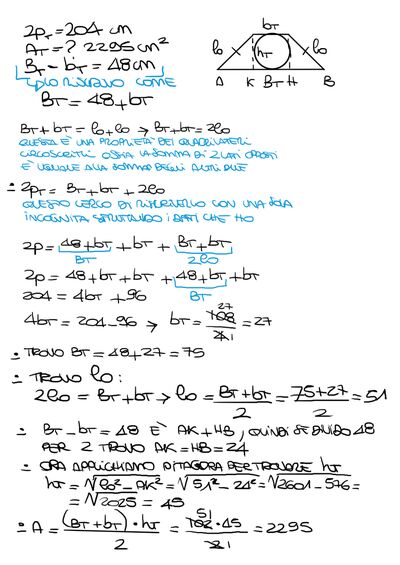 2pT = 204 cm
AT = ? 2295 cm²
BT - bT = 48 cm
LO RISCRIVO COME
BT = 48 + bT
bT
lo hT lo
A K BT H B
BT + bT = lo + lo → BT + bT = 2lo
QUESTA È UNA PROPRIETÀ DEI QUADRILATERI
CIRCOSCRITTI OSSIA LA SOMMA DI 2 LATI OPPOSTI
È UGUALE ALLA SOMMA DEGLI ALTRI DUE
2pT = BT + bT + 2lo
QUESTO CERCO DI RISCRIVERLO CON UNA SOLA
INCOGNITA SFRUTTANDO I DATI CHE HO
2p = 48 + bT + bT + BT + bT
BT 2lo
2p = 48 + bT + bT + 48 + bT + bT
BT
204 = 4bT + 96
4bT = 204 - 96 → bT = 108 27 / 4 1 = 27
TROVO BT = 48 + 27 = 75
TROVO lo:
2lo = BT + bT → lo = BT + bT / 2 = 75 + 27 / 2 = 51
BT - bT = 48 È AK + HB, QUINDI SE DIVIDO 48
PER 2 TROVO AK = HB = 24
ORA APPLICHIAMO PITAGORA PER TROVARE hT
hT = √lo² - AK² = √51² - 24² = √2601 - 576 =
= √2025 = 45
A = (BT + bT) · hT / 2 = 51 102 · 45 / 2 1 = 2295